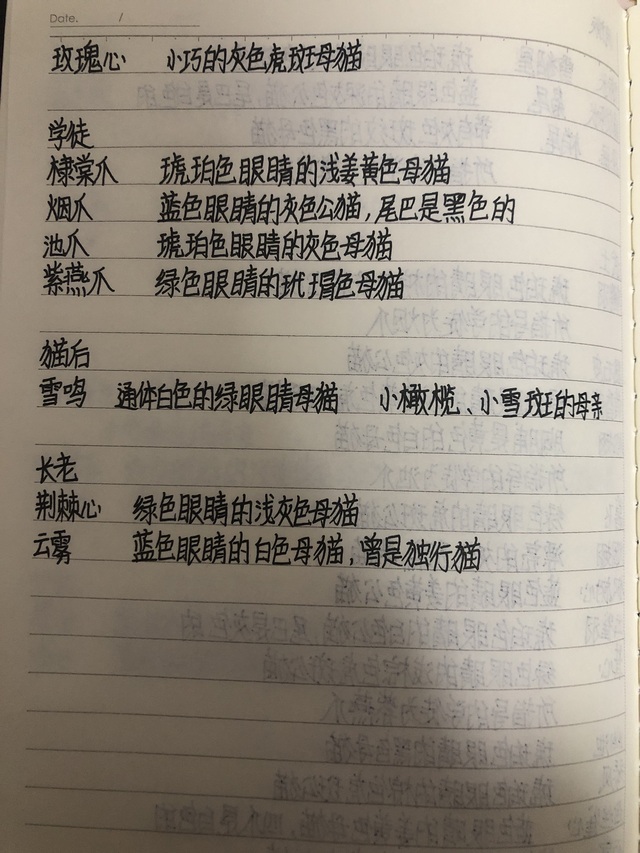 Date. /
玫瑰心 小巧的灰色虎斑母猫
学徒
棣棠爪 琥珀色眼睛的浅姜黄色母猫
烟爪 蓝色眼睛的灰色公猫,尾巴是黑色的
池爪 琥珀色眼睛的灰色母猫
紫燕爪 绿色眼睛的玳瑁色母猫
猫后
雪鸣 通体白色的绿眼睛母猫 小橄榄、小雪斑的母亲
长老
荆棘心 绿色眼睛的浅灰色母猫
云雾 蓝色眼睛的白色母猫,曾是独行猫